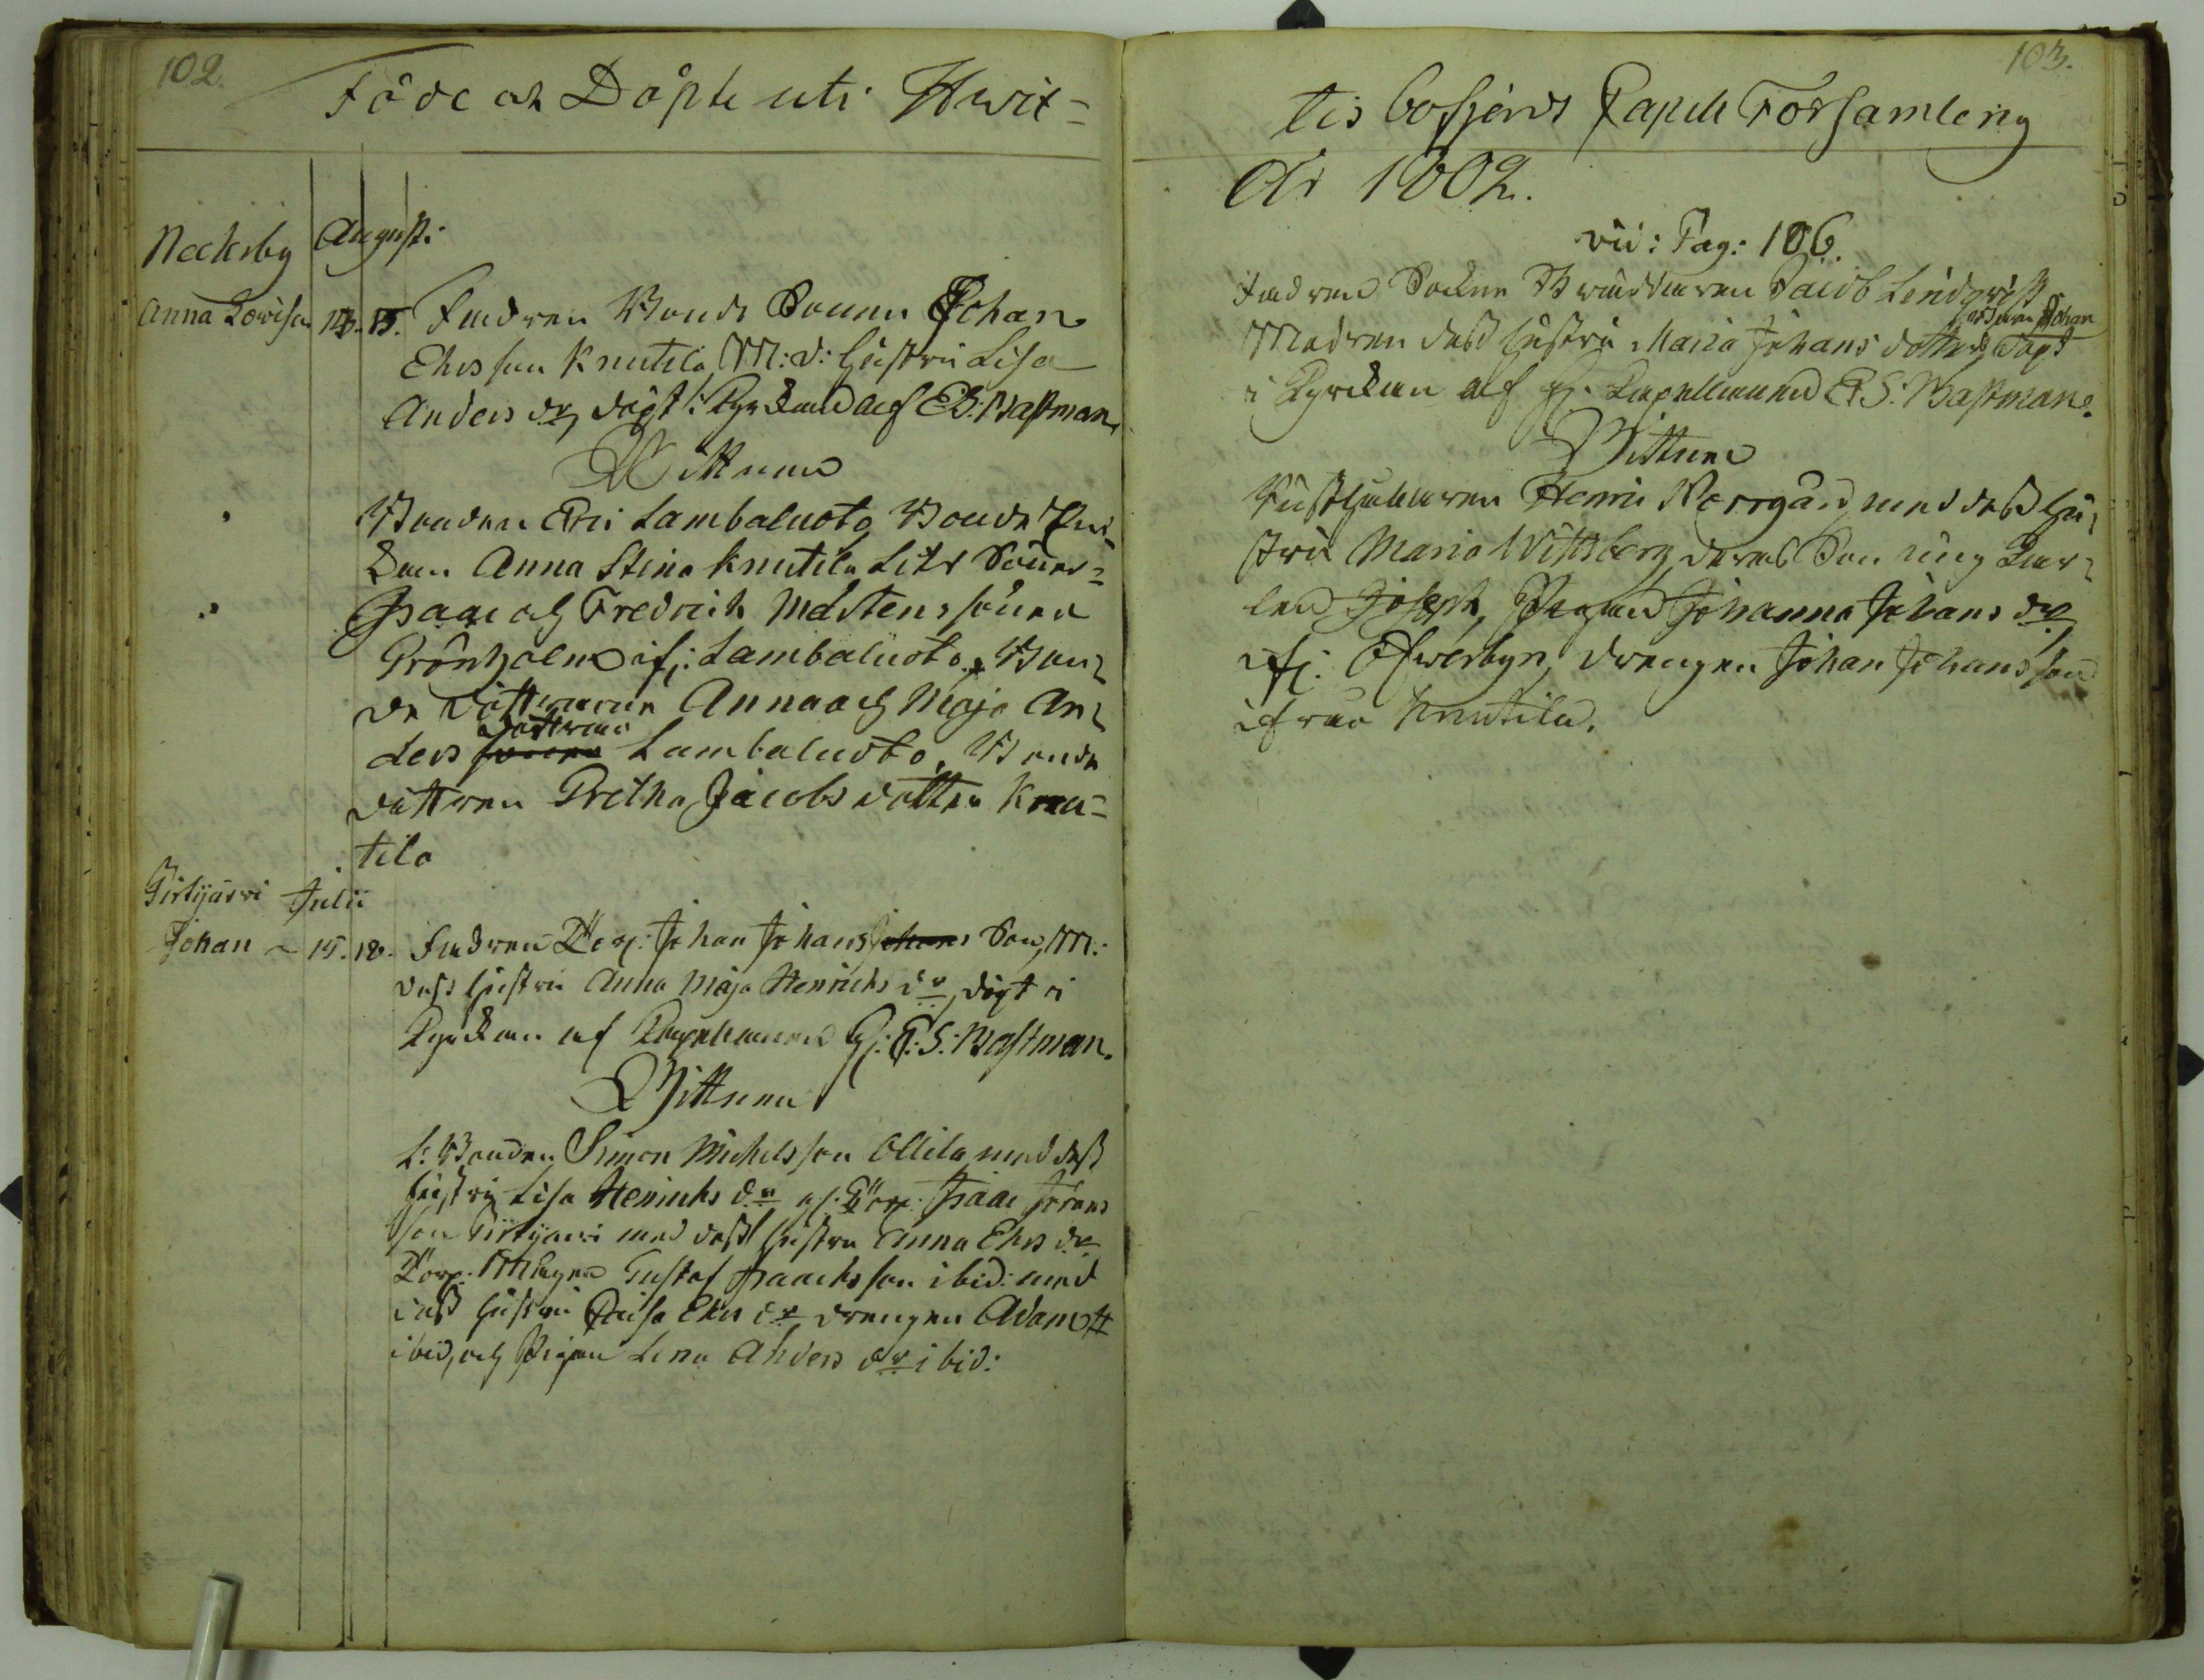 102.
Födde och Döpte uti Hwit=
Neckeby
Augusti
Anna Lovisa 13. 15. Fadren Bonde Sonen Johan
Ersson Knutila M: d: Hustru Lisa
Anders dr, döpt i Kyrckan af E.S. Wastman
Wittnen
Bonden Eric Lambaluoto, Bonde En=
kan Anna Stina Knutila Lik Söner=
Isaac och Fredrich Mårtens söner
Grönholm if: Lambaluoto, Bon=
de Döttrarne Anna och Maja An=
ders döttrar Lambaluoto, Bonde
dottren Gretha Jacobs dotter Knu=
tila
Pirtijärvi Julii
Johan ~ 15. 18. Fadren Torp: Johan Johans Son, M:
dess Hustru Anna Maja Henrichs dr, döpt i
Kyrckan af Capellanen H: E: S: Wastman.
Wittnen
L: Bonden Simon Michelsson Ollila med dess
Hustru Lisa Henrichs dr, Torp. Isaac Jörans
son Pirtijärvi med dess Hustru Anna Ers dr
Torp. Mågen Gustaf Isaacksson ibid: med
dess Hustru Caisa Ers dr drengen Adam
ibid, och Pigan Lena Anders dr ibid:
103.
tis Bofjärds Capell Församling
År 1802.
vid: Pag: 106.
Fadren Sockne Skräddaren Jacob Lindqvist
Sonen Johan
Modren dess Hustru Maria Johans dotter, Döpt
i Kyrckan af H. Capellanen E.S. Wastman.
Wittnen
Rusthållaren Henric Norrgård med dess Hu=
stru Maria Wittsberg, deras Son ung Kar=
len Joseph, Pigan Johanna Johans dr
if: Öfwerbyn, Drengen Johan Johansson
ifrån Knutila.